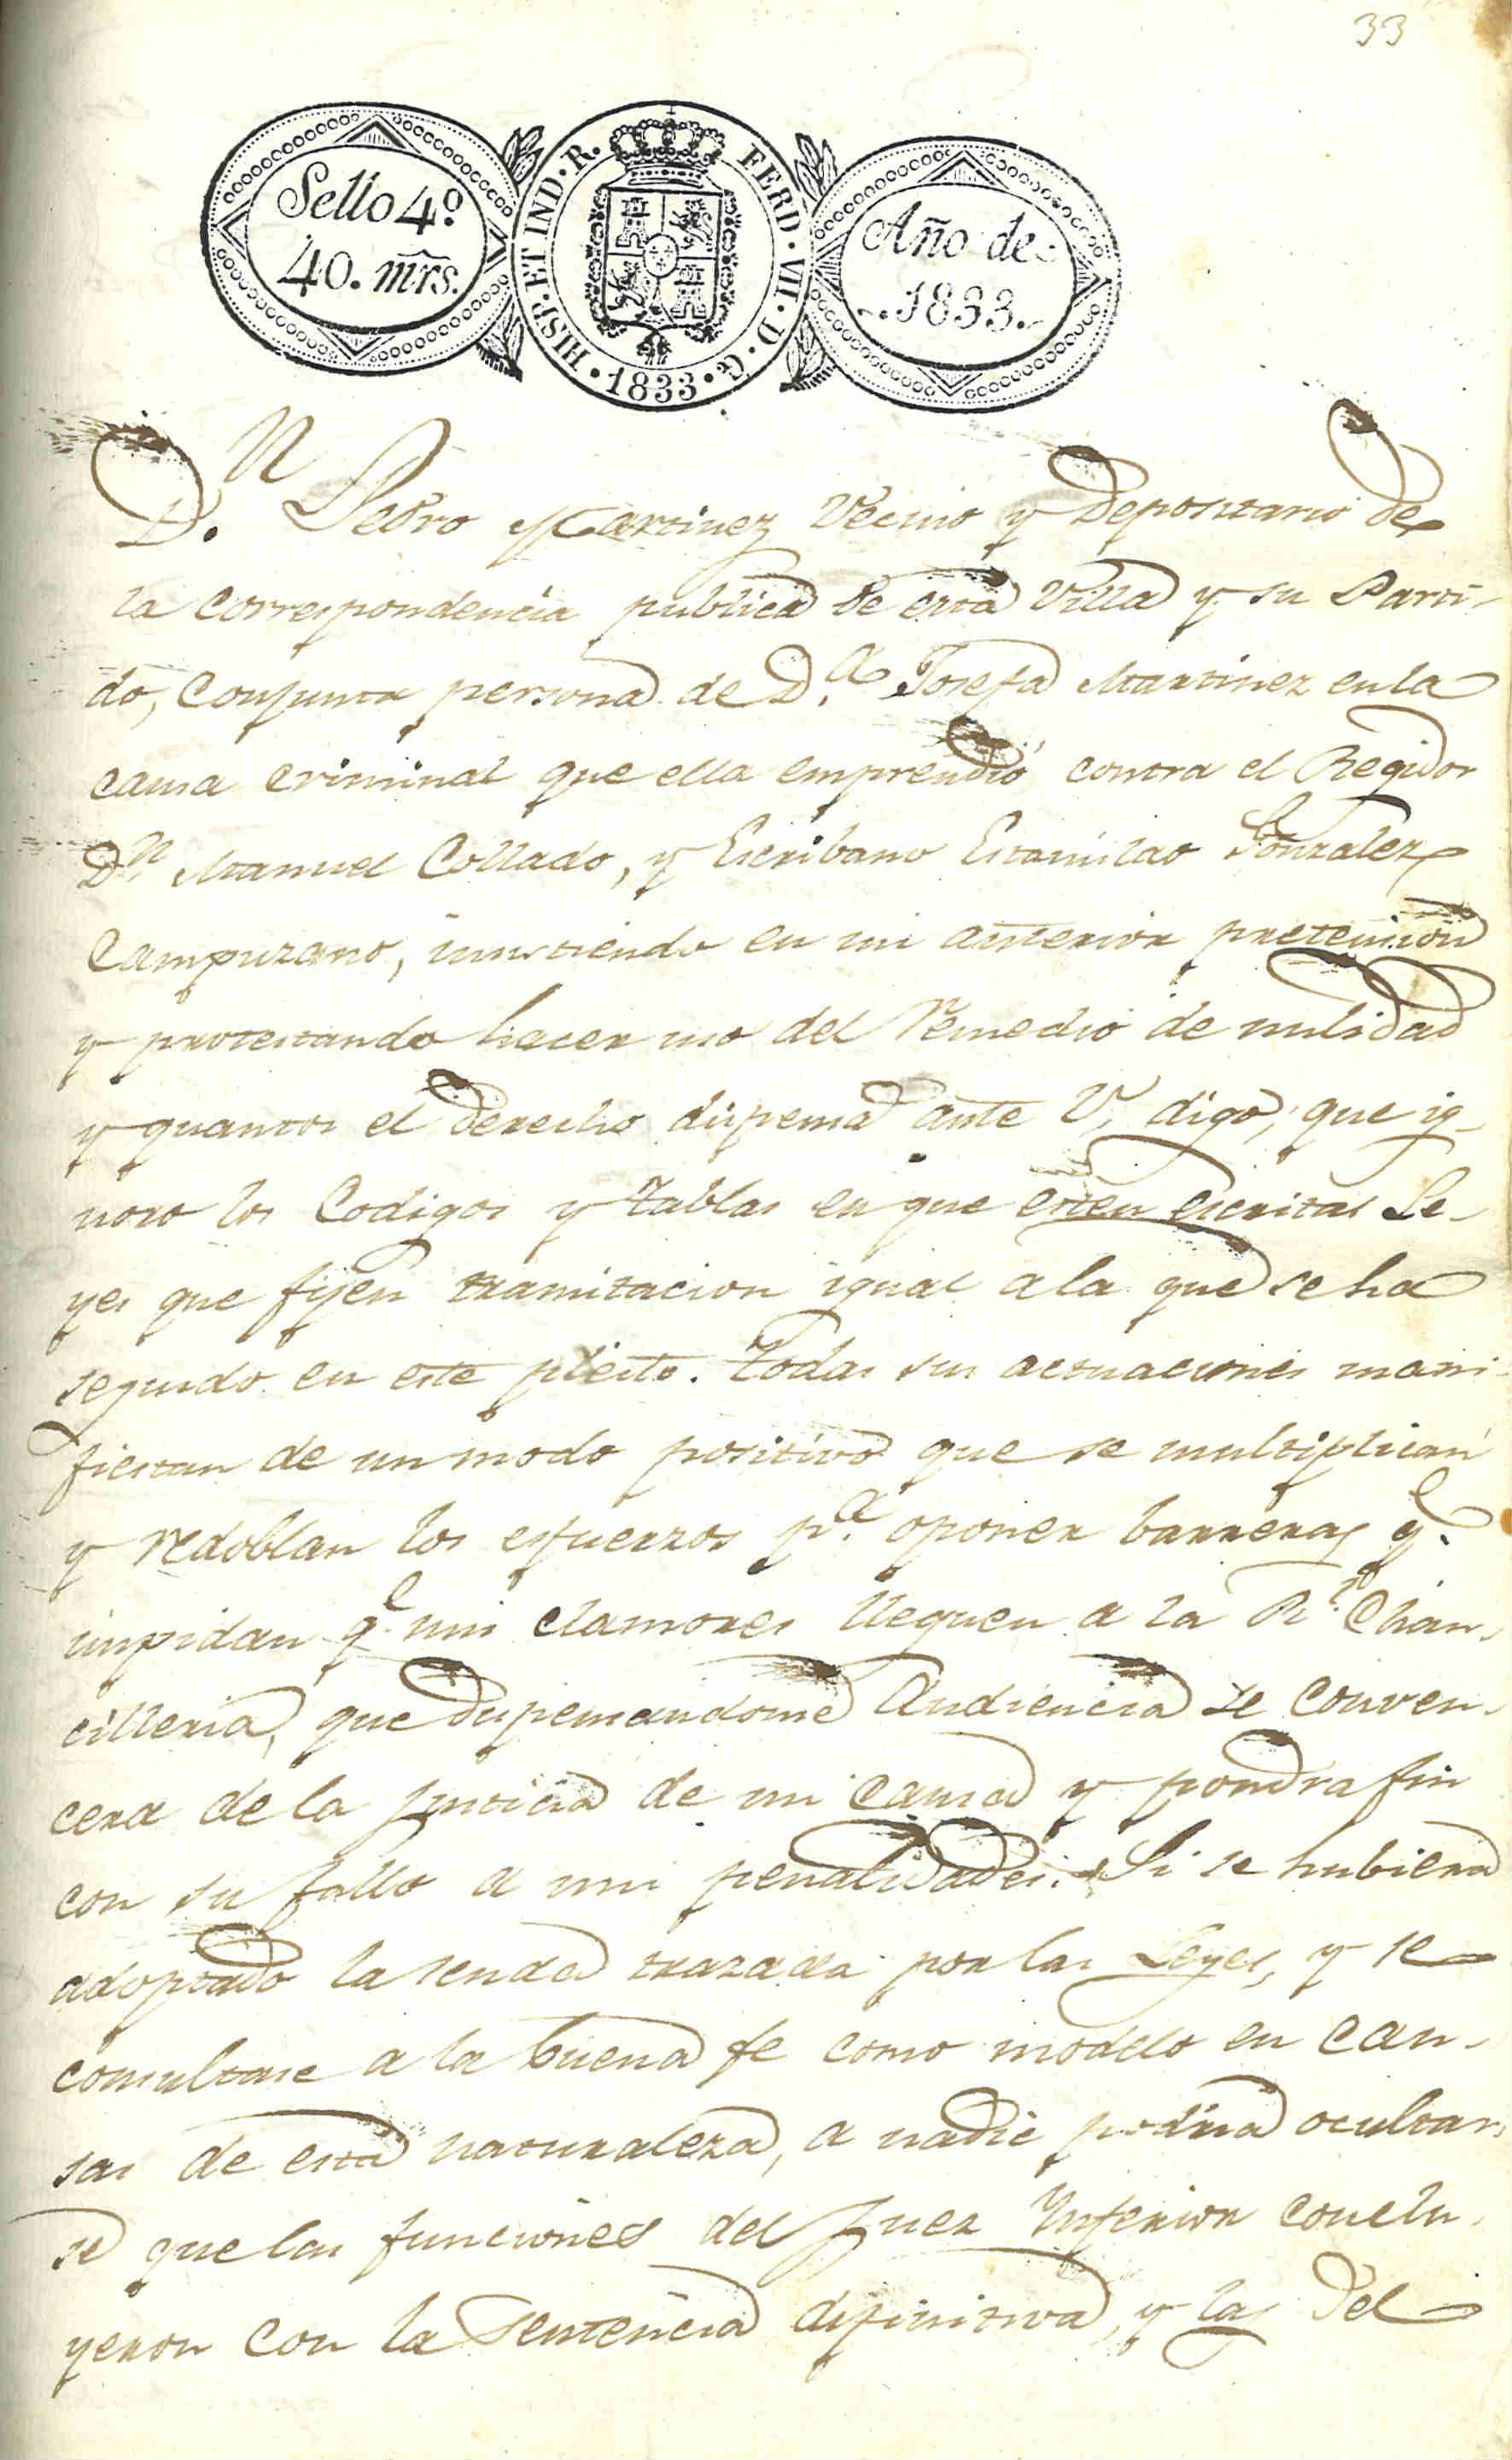 33
Sello 4º
40. mrs.
HISP. ET IND. R. FERD. VII. D. G. 1833
Año de
1833.
D.n Pedro Martinez Vecino y Depositario de
la correspondencia publica de esta Villa y su Parti-
do, conjunta persona de D.a Josefa Martinez en la
causa criminal que ella emprendió contra el Regidor
D.n Manuel Collado, y Escribano Estanislao Gonzalez
Campuzano, insistiendo en mi anterior pretension
y protestando hacer uso del remedio de nulidad
y quantos el derecho dispensa ante V. digo; que ig-
noro los Codigos y tablas en que esten escritas Le-
yes que fijen tramitacion igual a la que se ha
seguido en este pleito. Todas sus actuaciones mani-
fiestan de un modo positivo que se multiplican
y redoblan los esfuerzos p.a oponer barreras q.e
impidan q.e mis clamores lleguen a la R.l Chan-
cilleria, que dispensandome Audiencia se conven-
cera de la justicia de mi causa y pondra fin
con su fallo a mis penalidades. Si se hubiera
adoptado la senda trazada por las Leyes, y se
consultase a la buena fe como modelo en cau-
sas de esta naturaleza, a nadie podria ocultar-
se que las funciones del Juez Inferior conclu-
yeron con la sentencia difinitiva, y las del